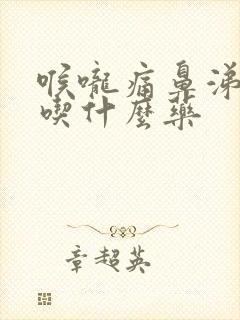 喉嚨痛鼻涕
喫什麼藥
章超英